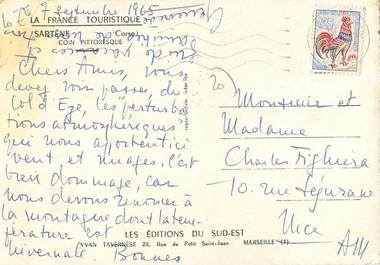 le 7 septembre 1965
LA FRANCE TOURISTIQUE
SARTÈNE (Corse)
COIN PITTORESQUE
Chers Amis, nous
devez vous passer, du
Col d'Eze, les perturba
tions atmosphériques
qui nous apportent ici
vent, et nuages. C'est
bien dommage, car
nous devons renoncer à
la montagne dont la tem-
pérature est
hivernale. Bonnes
Monsieur et
Madame
Charles Fighiera
10. rue Ségurane
Nice
AM
20
LES ÉDITIONS DU SUD-EST
YVAN TAVERNÈSE 28, Rue de Petit Saint-Jean MARSEILLE (1)